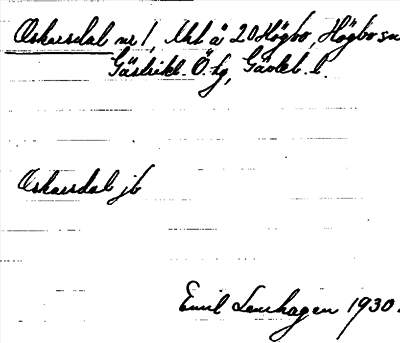 Oskarsdal nr 1, Utl å 20 Högbo, Högbo sn
Gästrikl. Ö. hg, Gävleb. l.
Oskarsdal jb
Emil Lenhagen 1930.